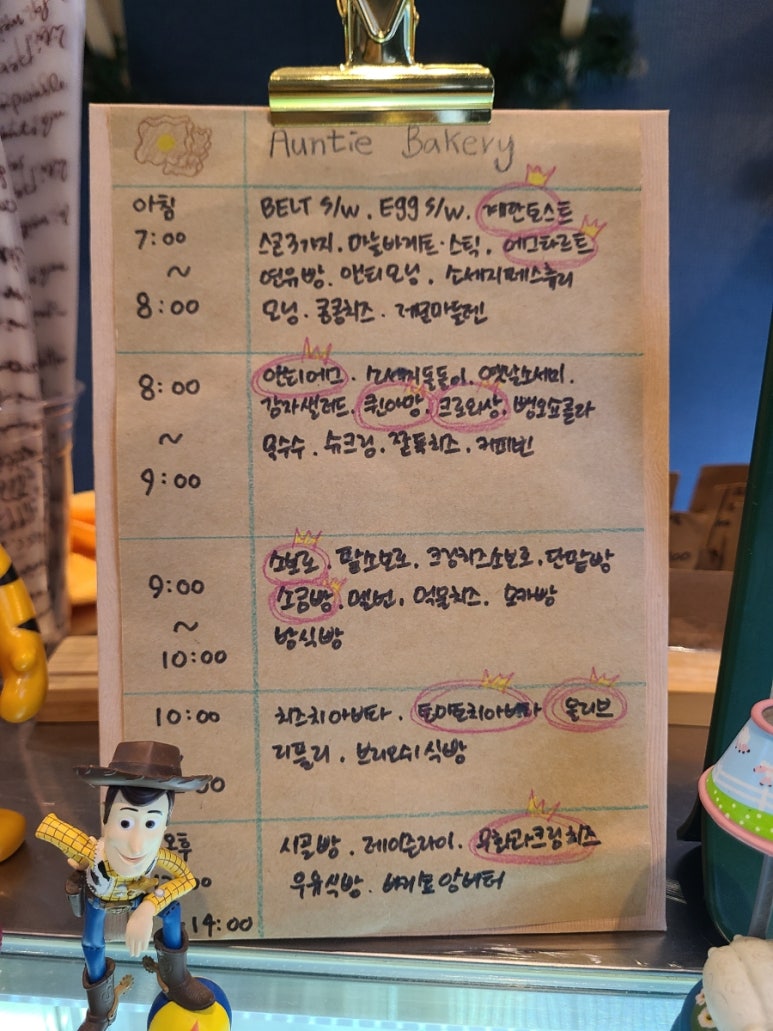 Auntie Bakery
아침 BELT S/W. Egg S/W. 계란토스트
7:00 스콘3가지. 마늘바게트·스틱. 에그타르트
~ 연유빵. 앤티모닝. 소세지페스츄리
8:00 모닝. 콩콩치즈. 레몬마들렌
8:00 앤티에그. 소세지돌돌이. 옛날소세지.
감자샐러드. 퀸아망. 크로와상. 뺑오쇼콜라
~ 옥수수. 슈크림. 찰떡치즈. 커피번
9:00
소보로. 팥소보로. 크림치즈소보로. 단팥빵
9:00 소금빵. 멜번. 먹물치즈. 모카빵
~ 밤식빵
10:00
10:00 치즈치아바타. 토마토치아바타 올리브
리플리. 브리오쉬식빵
00
오후 시골빵. 레이즌라이. 무화과크림치즈
00 우유식빵. 바게트앙버터
14:00